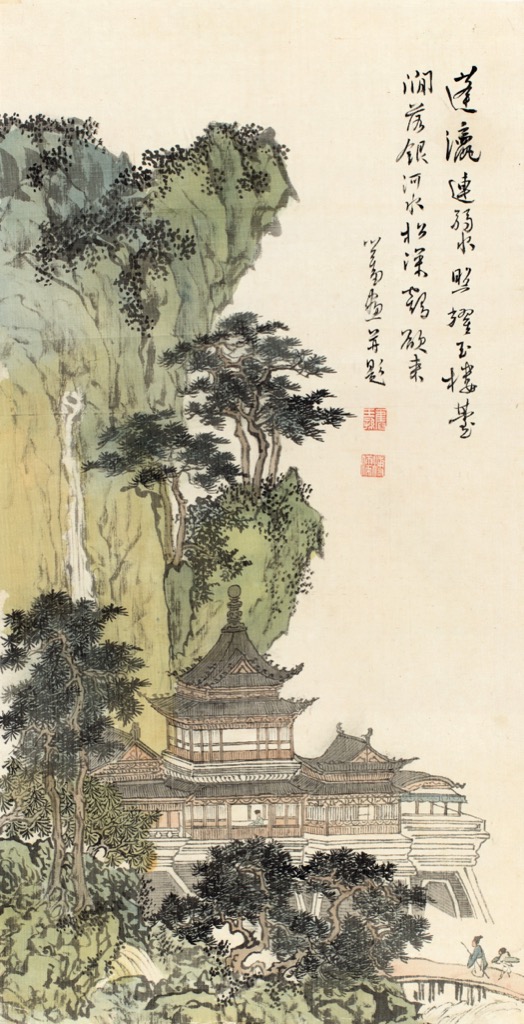 蓬瀛連弱水照耀玉樓臺
澗落銀河水松深鶴欲來
心畬畫并題